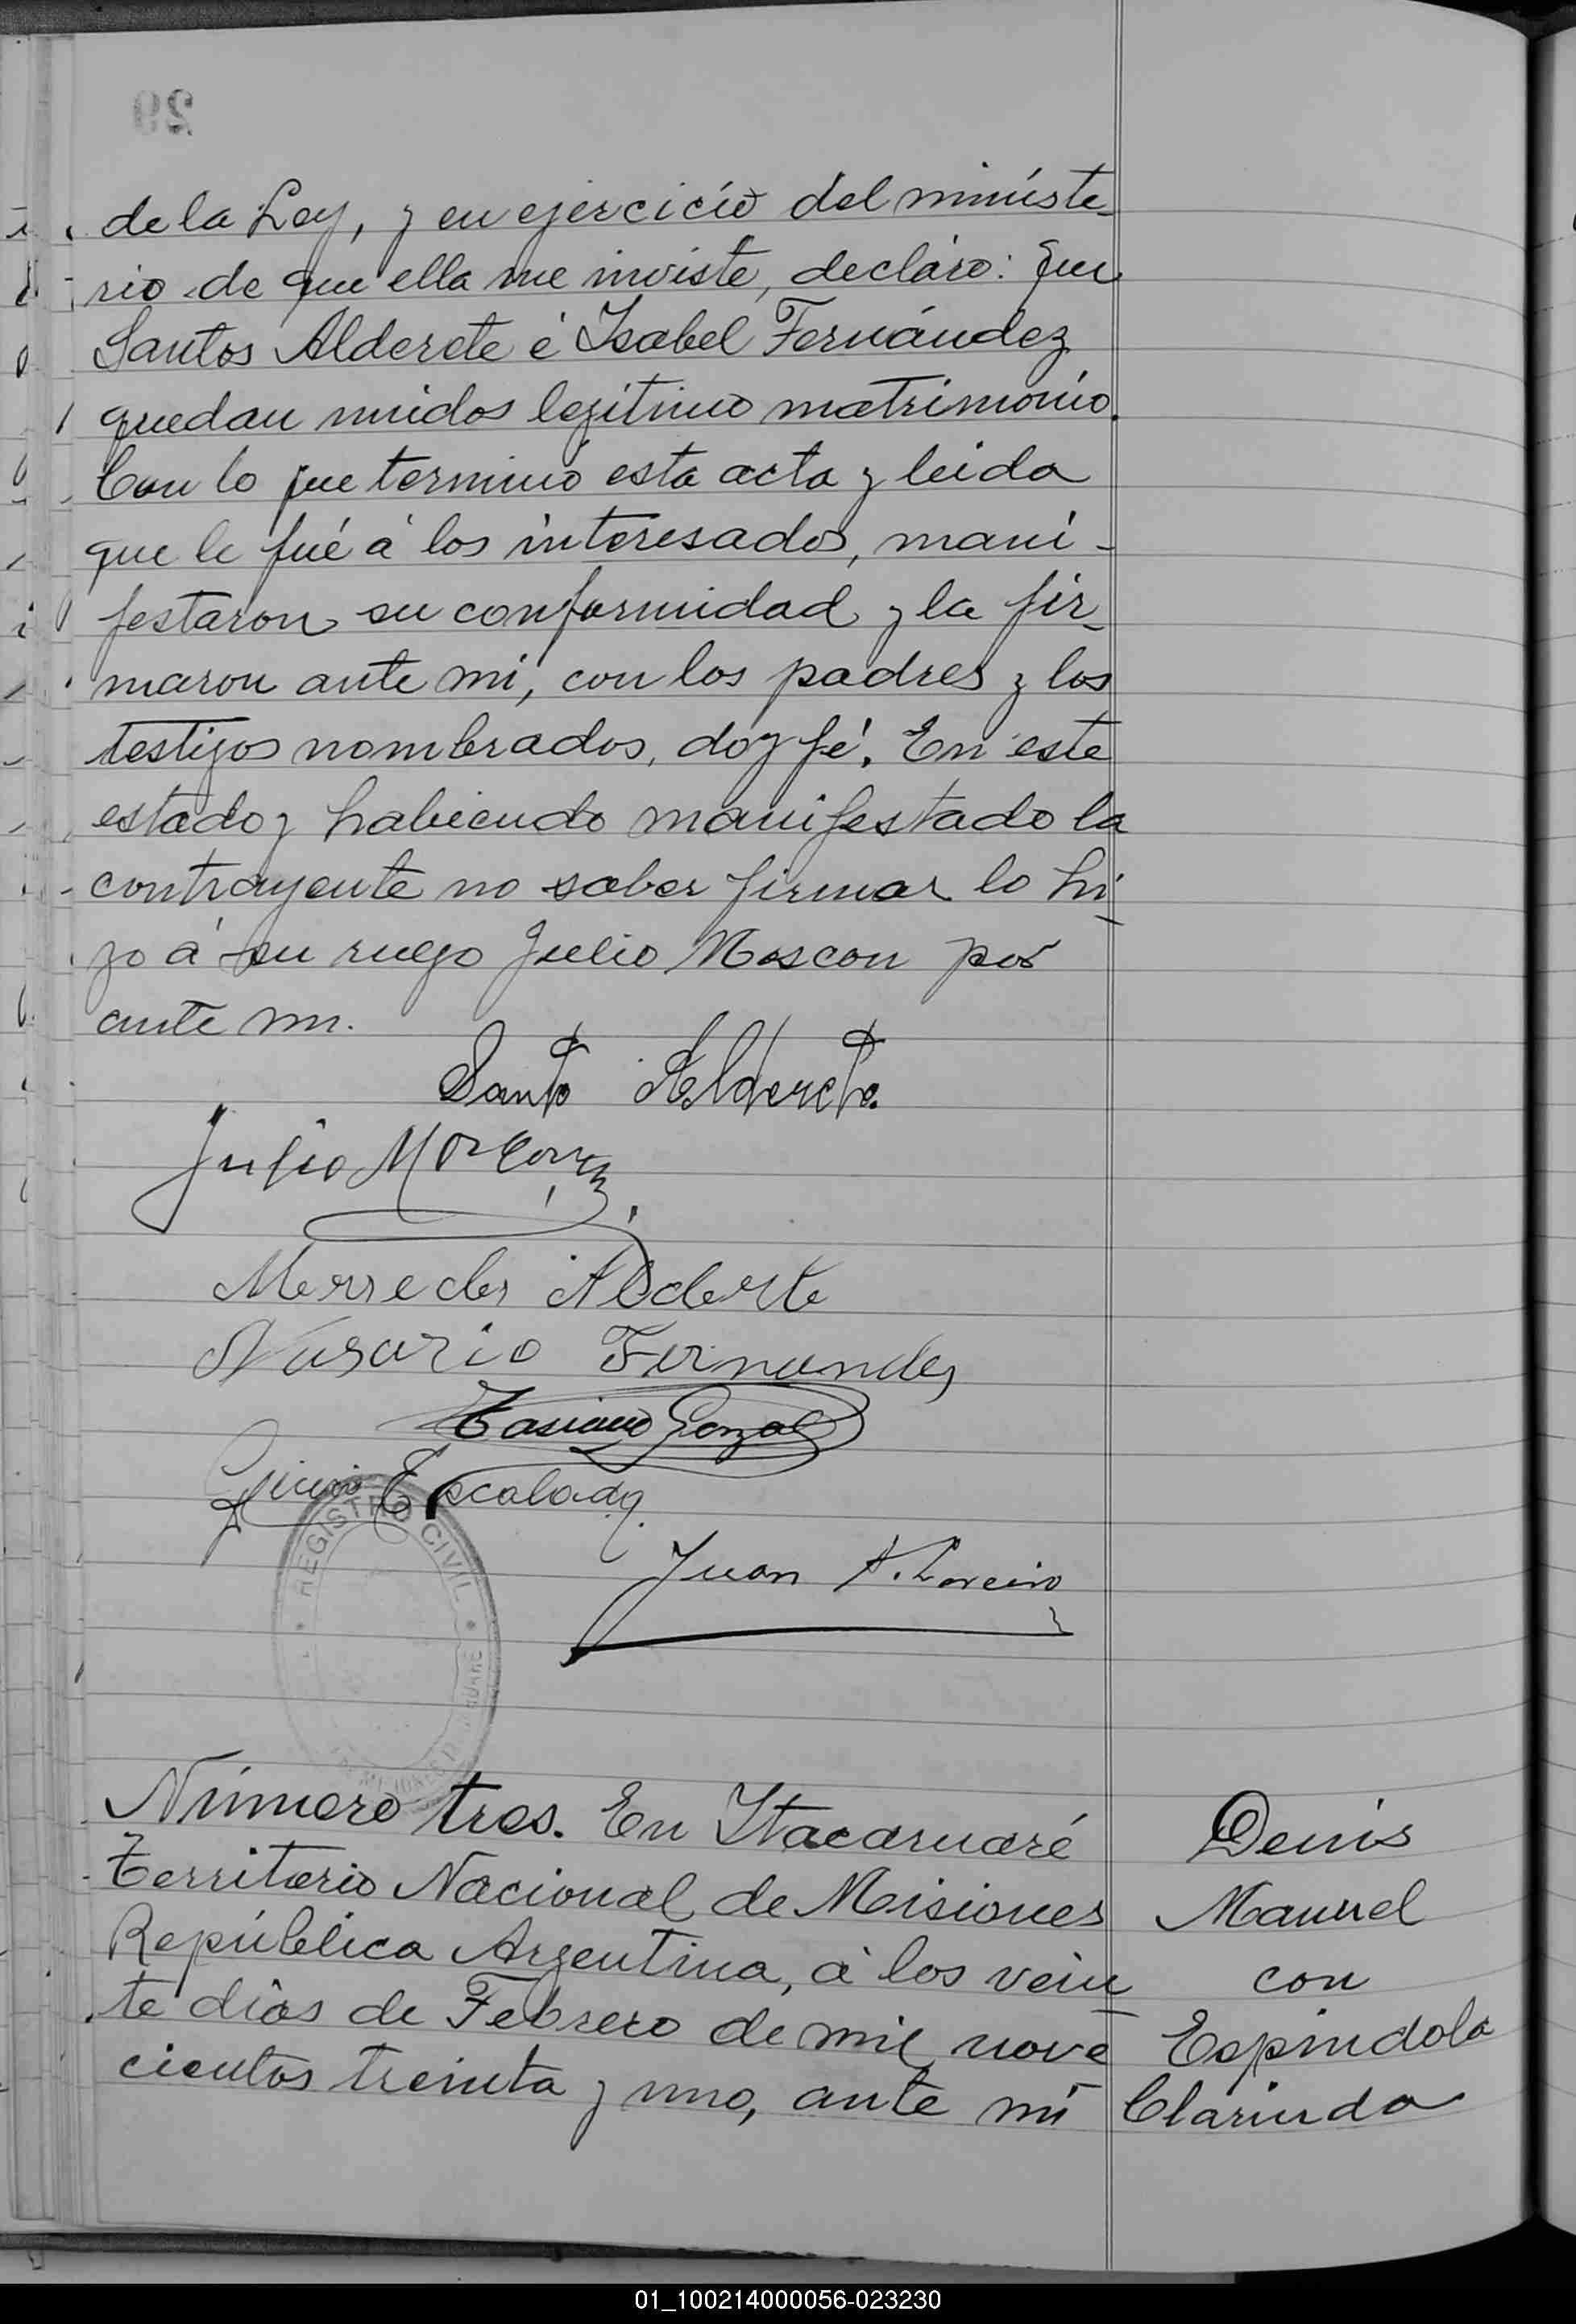 29
de la Ley, y en ejercicio del ministe-
rio de que ella me inviste, declaro: que
Santos Alderete é Isabel Fernández
quedan unidos legitimo matrimonio.
Con lo que terminó esta acta y leida
que le fué á los interesados, mani-
festaron su conformidad y la fir-
maron ante mi, con los padres y los
testigos nombrados, doy fé. En este
estado y habiendo manifestado la
contrayente no saber firmar lo hi-
zo á su ruego Julio Moscon por
ante mi.
Santo Alderete.
Julio Moscon
Mersedes Alderete
Nasario Fernandes
Gonzal
Escalada
Juan A. Loreiro
REGISTRO CIVIL
Número tres. En Itacaruaré
Territorio Nacional de Misiones
República Argentina, á los vein-
te dias de Febrero de mil nove
cientos treinta y uno, ante mi
Denis
Manuel
con
Espindola
Clarinda
01_100214000056-023230